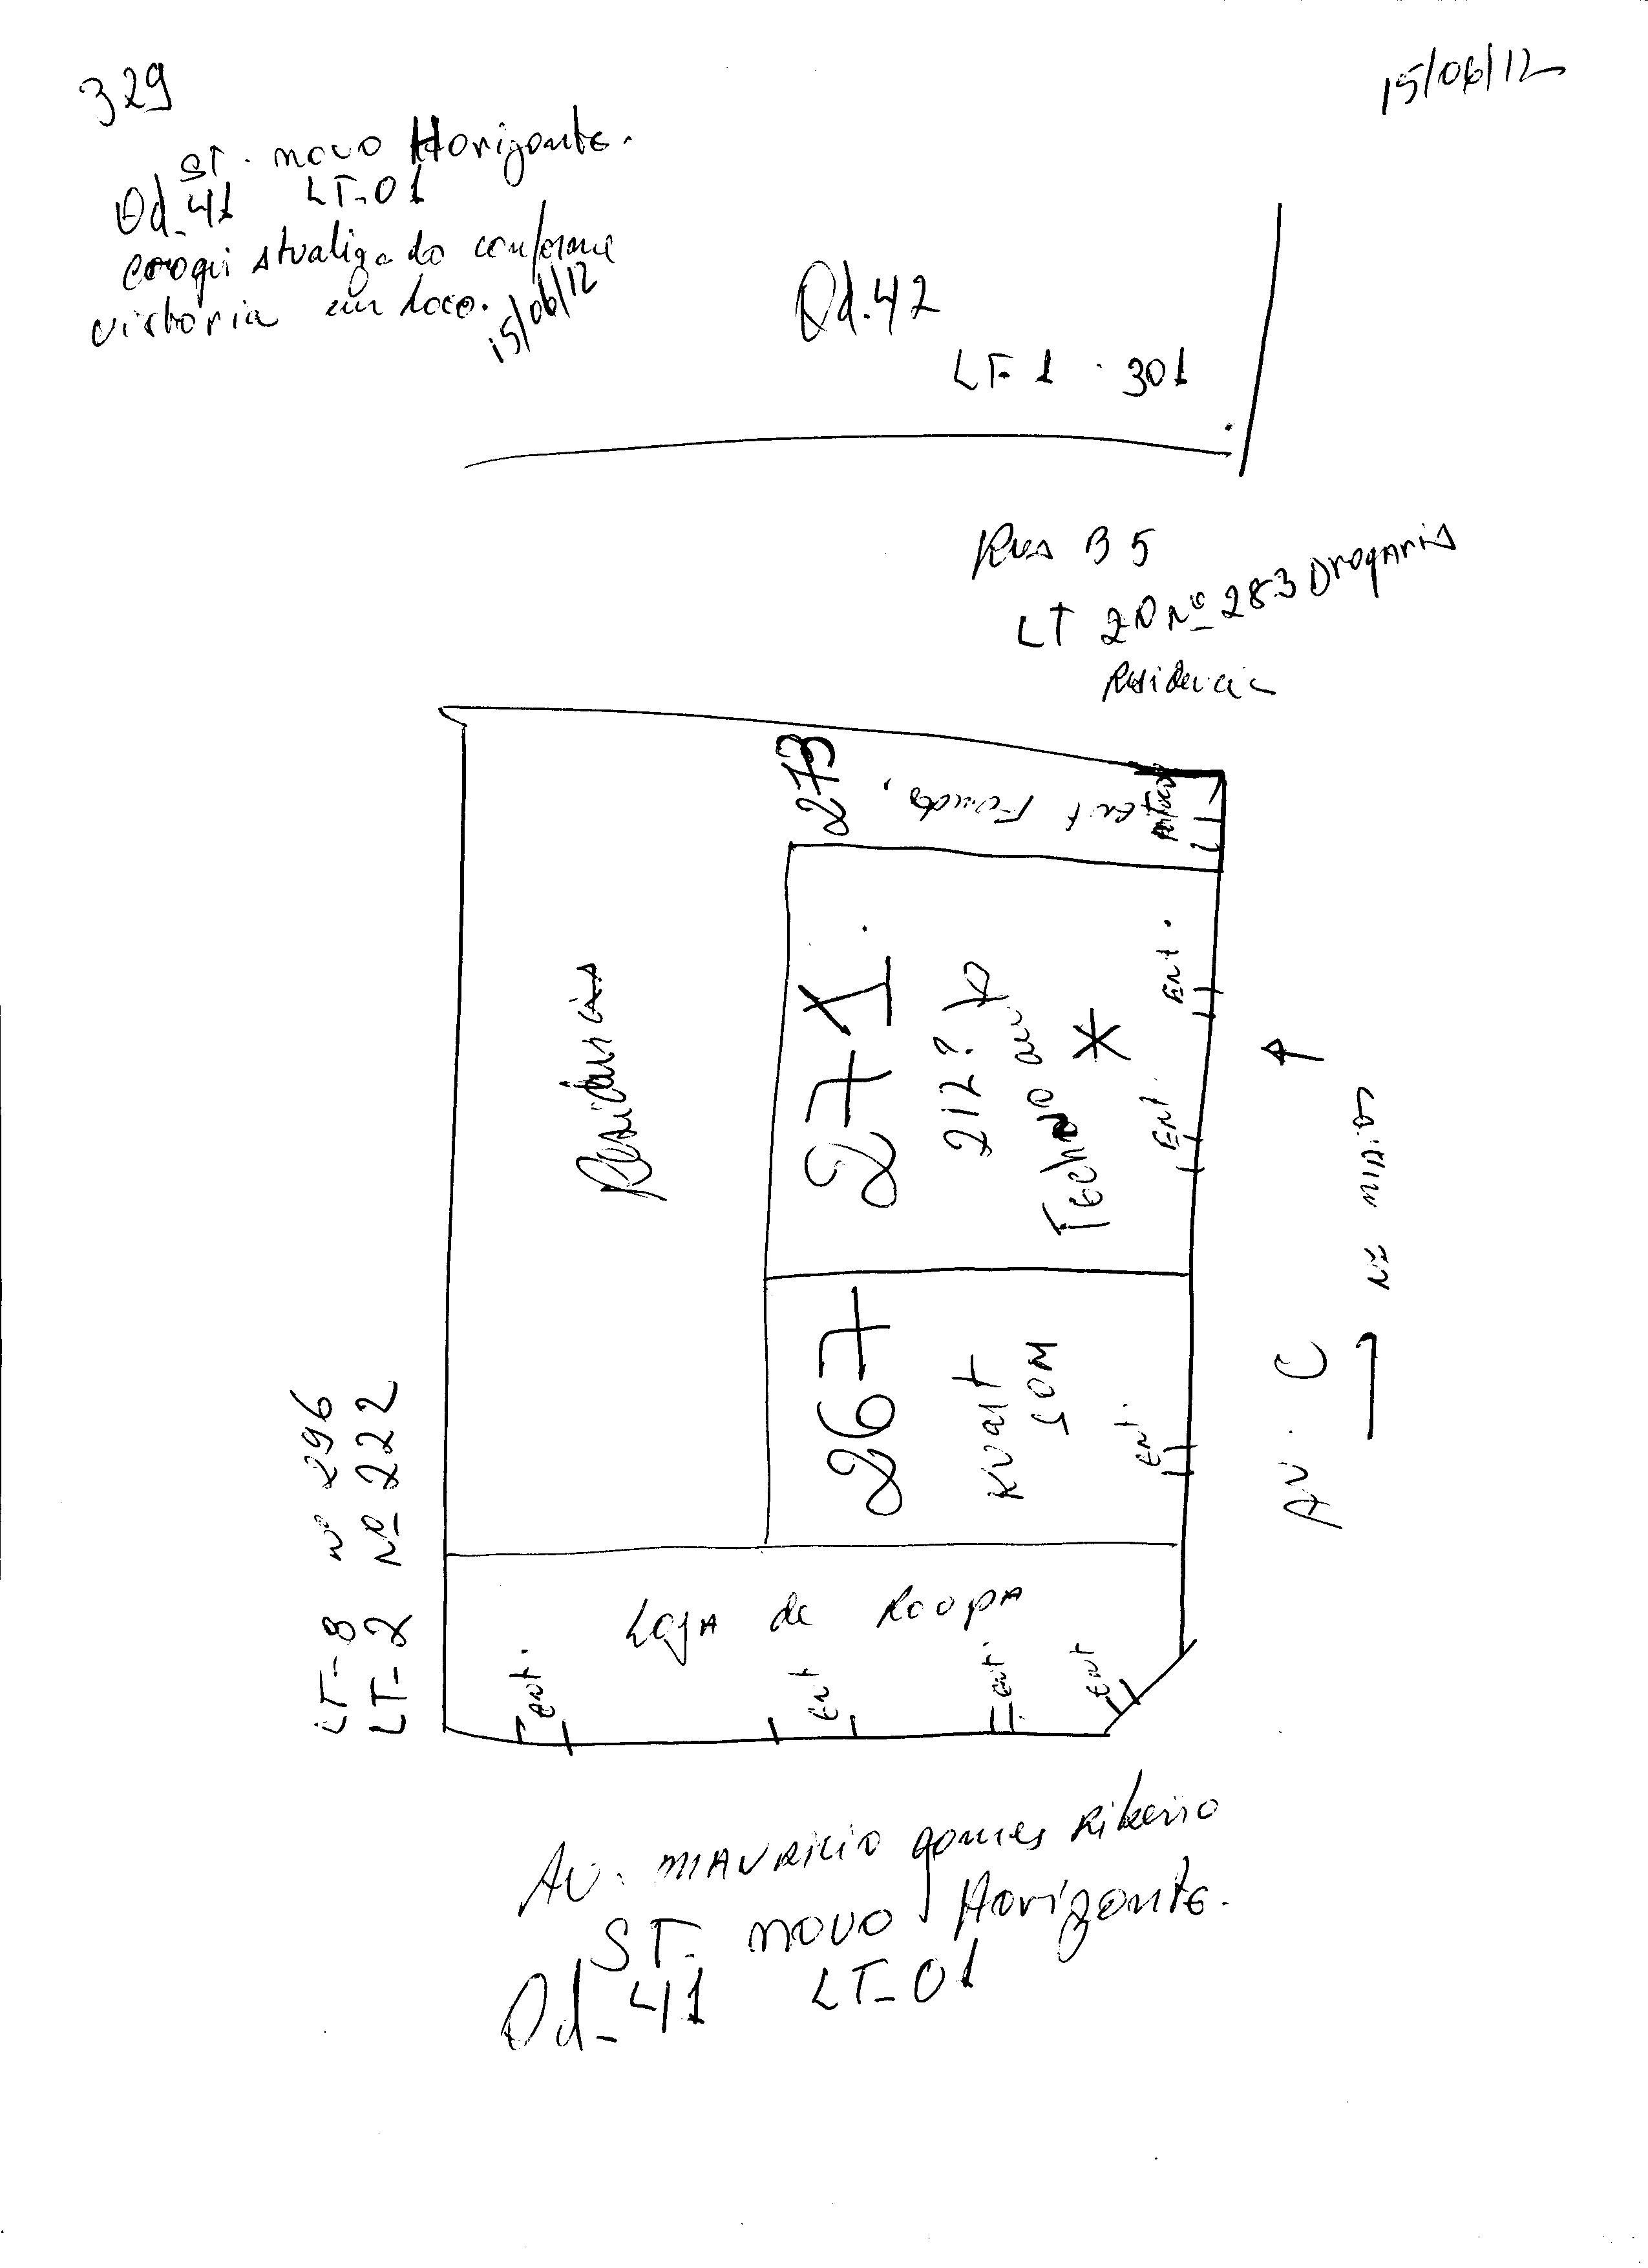 329
15/06/12
ST. novo Horizonte.
Qd_41 LT-01
croqui atualizado conforme
vistoria em loco. 15/06/12
Qd.42
LT-1 . 301
Rua B 5
LT 20 Nº 283 Drogaria
Residencia
273
ent Fundos.
Residencias
271.
212?
Techno
Ent.
Ent.
267
KVart
SOM
Ent.
LT-8 nº 296
LT-2 Nº 222
AV. C
Nº
Loja de Roopa
ent.
ent
ent.
ent
AV. MAVRICIO gomes Ribeiro
ST. novo Horizonte.
Qd_41 LT-01